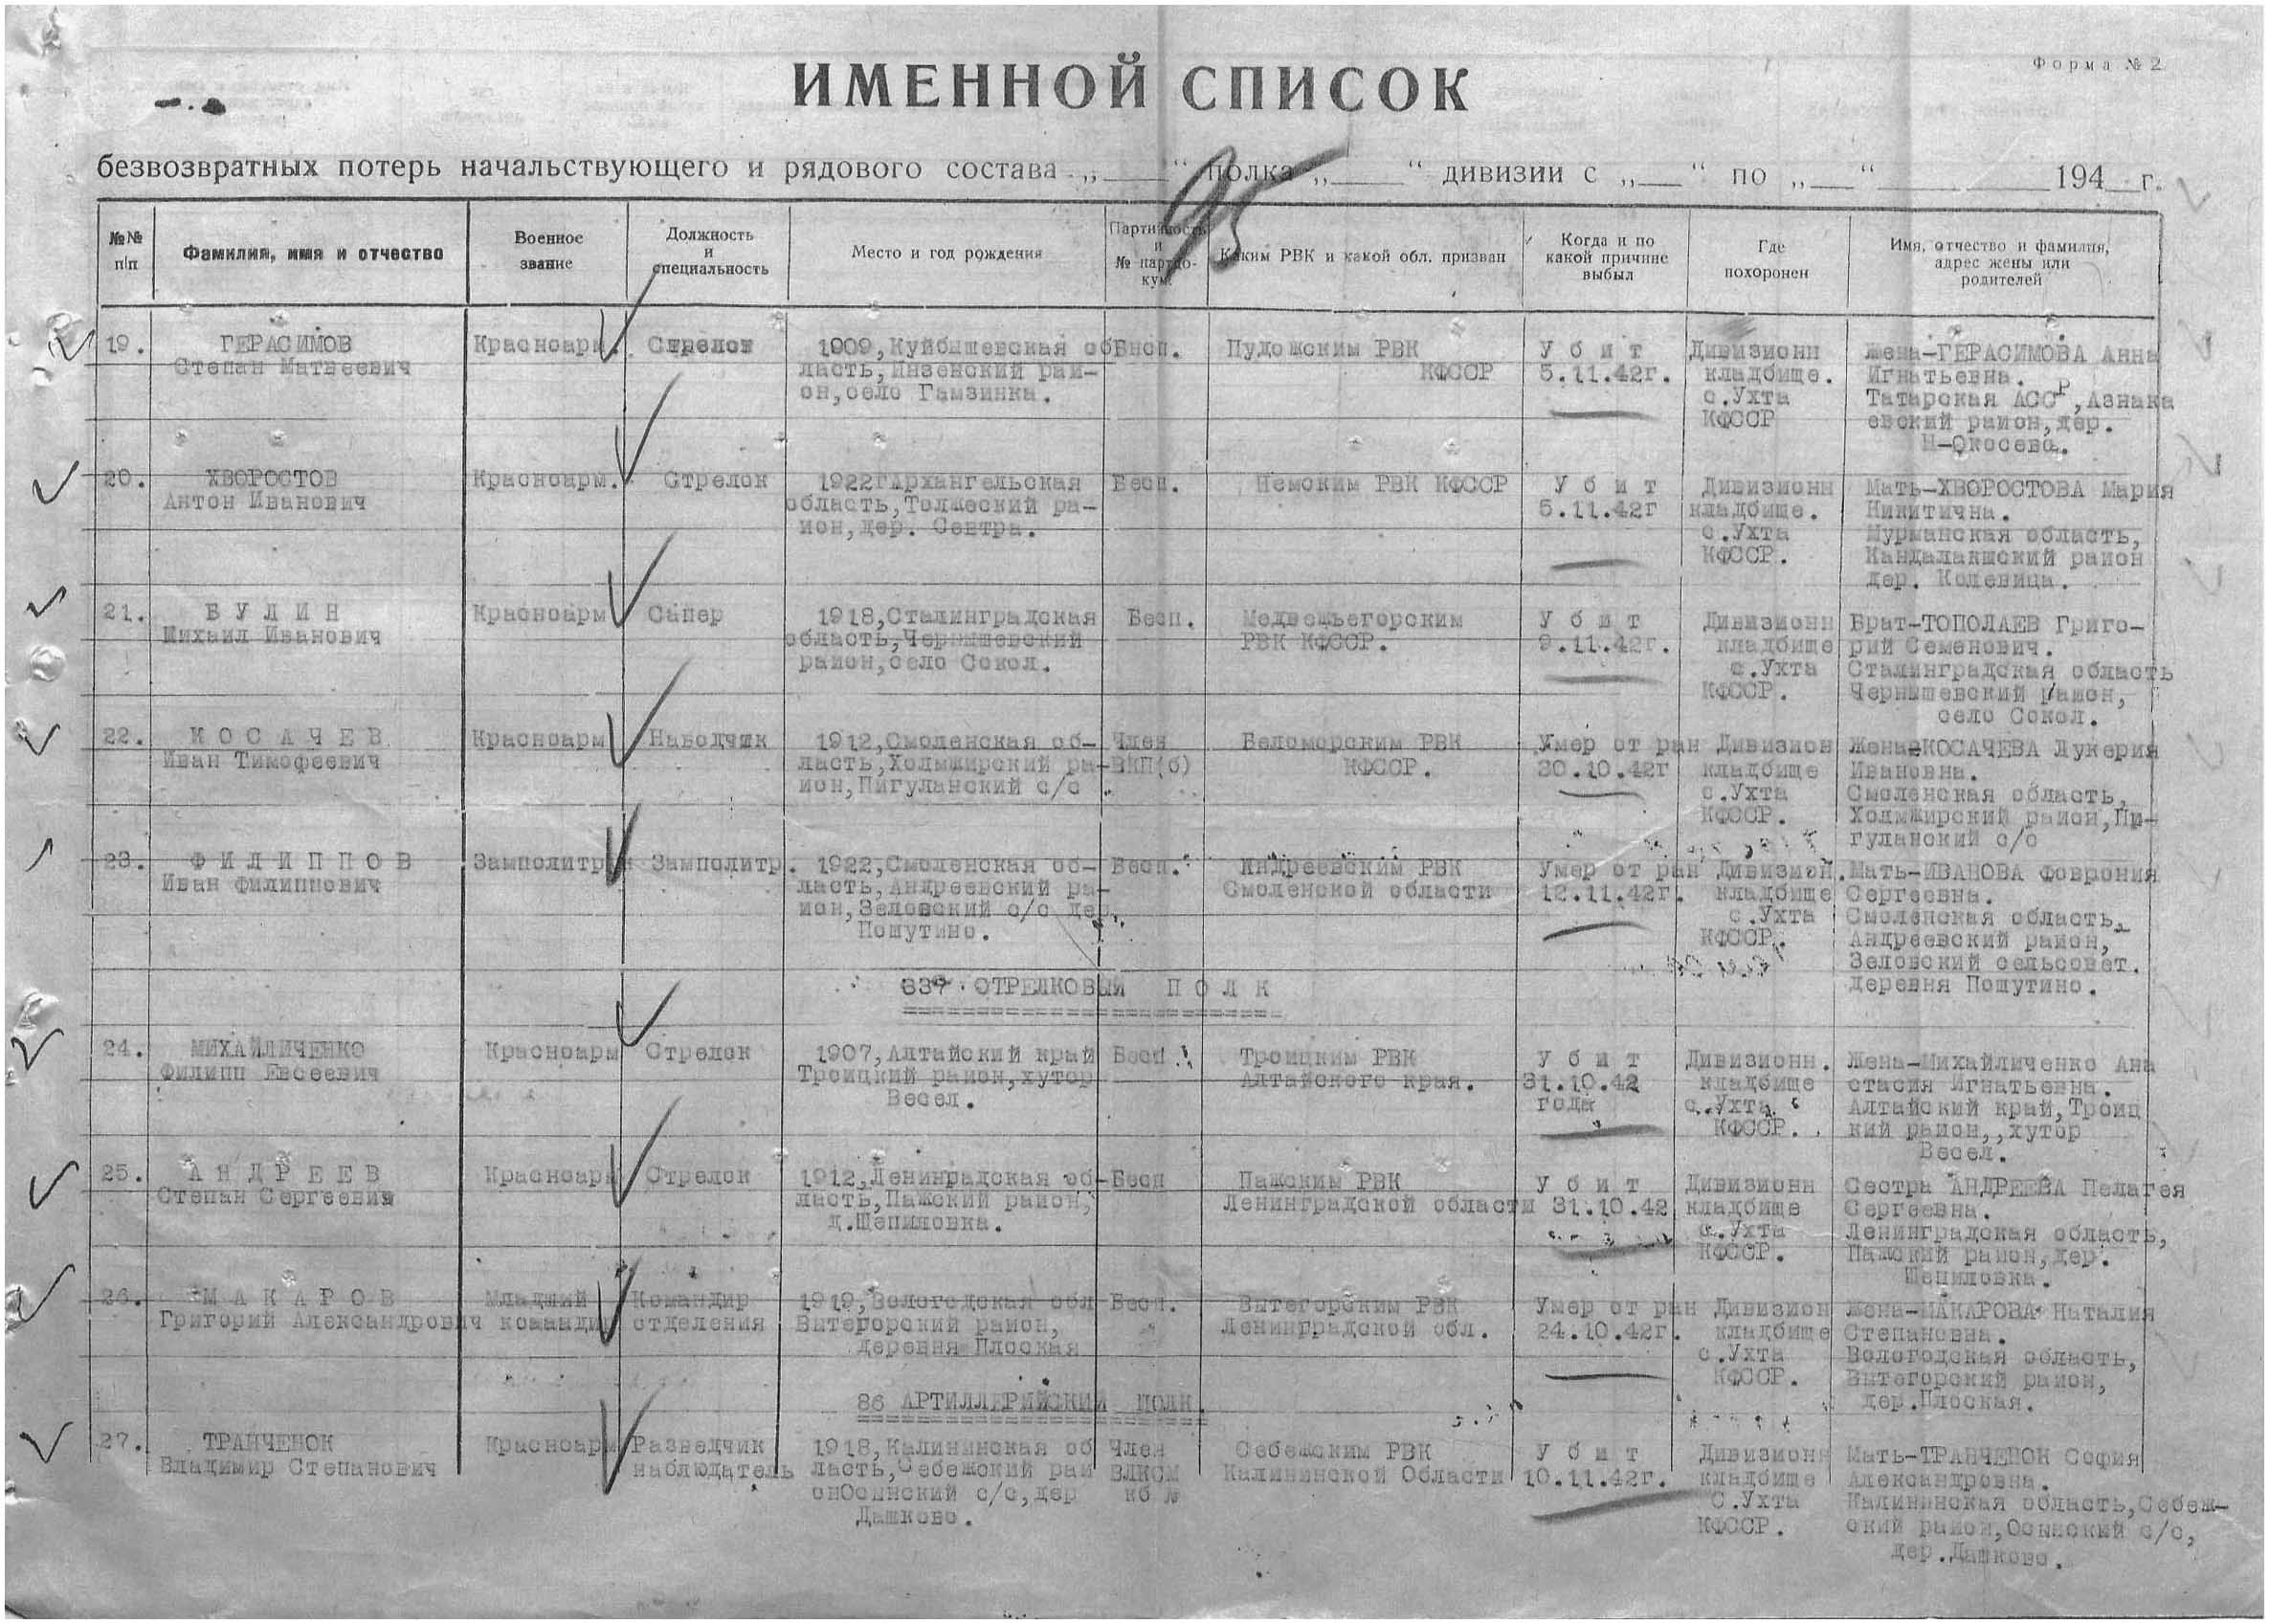 Форма № 2
ИМЕННОЙ СПИСОК
безвозвратных потерь начальствующего и рядового состава „ “ полка „ “ дивизии с „ “ по „ “ 194 г.
95
№№ п/п
Фамилия, имя и отчество
Военное звание
Должность и специальность
Место и год рождения
Партийность и № партдокум.
Каким РВК и какой обл. призван
Когда и по какой причине выбыл
Где похоронен
Имя, отчество и фамилия, адрес жены или родителей
19. ГЕРАСИМОВ Красноарм. Стрелок 1909,Куйбышевская об Бесп. Пудожским РВК Убит Дивизионн Жена-ГЕРАСИМОВА Анна
Степан Матвеевич ласть,Инзенский рай- КФССР 5.11.42г. кладбище. Игнатьевна.
он,село Гамзинка. с.Ухта Татарская АССР,Азнака
КФССР евский район,дер.
20. ХВОРОСТОВ Красноарм. Стрелок 1922г Архангельская Бесп. РВК КФССР Убит Дивизионн Мать-ХВОРОСТОВА Мария
Антон Иванович область, район,дер. 5.11.42г кладбище. Никитична.
с.Ухта Мурманская область,
КФССР. Кандалакшский район
дер. Колевица.
21. БУЛИН Красноарм Сапер 1918,Сталинградская Бесп. Медвежьегорским Убит Дивизионн Брат-ТОПОЛАЕВ Григо-
Михаил Иванович область,Чернышевский РВК КФССР. 9.11.42г. кладбище рий Семенович.
район,село Сокол. с.Ухта Сталинградская область
КФССР. Чернышевский район,
село Сокол.
22. КОСАЧЕВ Красноарм Наводчик 1912,Смоленская об- Член Беломорским РВК Умер от ран Дивизион Жена-КОСАЧЕВА Лукерия
Иван Тимофеевич ласть,Холмжирский ра- ВКП(б) КФССР. 30.10.42г кладбище Ивановна.
ион,Пигулинский с/с . с.Ухта Смоленская область,
КФССР. Холмжирский район,Пи-
гулинский с/с
23. ФИЛИППОВ Замполитр Замполитр. 1922,Смоленская об- Бесп. Андреевским РВК Умер от ран Дивизион. Мать-ИВАНОВА Феврония
Иван Филиппович ласть,Андреевский ра- Смоленской области 12.11.42г. кладбище Сергеевна.
ион,Зеловский с/с дер. с.Ухта Смоленская область,
Пошутино. КФССР. Андреевский район,
Зеловский сельсовет.
деревня Пошутино.
837 СТРЕЛКОВЫЙ ПОЛК
24. МИХАЙЛИЧЕНКО Красноарм Стрелок 1907,Алтайский край Бесп Троицким РВК Убит Дивизионн. Жена-Михайличенко Ана
Филипп Евсеевич Троицкий район,хутор Алтайского края. 31.10.42 кладбище стасия Игнатьевна.
Весел. года с.Ухта Алтайский край,Троиц
КФССР. кий район,,хутор
Весел.
25. АНДРЕЕВ Красноарм Стрелок 1912,Ленинградская об- Бесп Пашским РВК Убит Дивизионн Сестра АНДРЕЕВА Пелагея
Степан Сергеевич ласть,Пашский район, Ленинградской области 31.10.42 кладбище Сергеевна.
д.Щепиловка. с.Ухта Ленинградская область,
КФССР. Пашский район,дер.
Щепиловка.
26. МАКАРОВ Младший Командир 1919,Вологодская обл Бесп. Вытегорским РВК Умер от ран Дивизион Жена-МАКАРОВА Наталия
Григорий Александрович командир отделения Вытегорский район, Ленинградской обл. 24.10.42г. кладбище Степановна.
деревня Плоская с.Ухта Вологодская область,
КФССР. Вытегорский район,
дер.Плоская.
86 АРТИЛЛЕРИЙСКИЙ ПОЛК.
27. ТРАНЧЕНОК Красноарм Разведчик 1918,Калининская об Член Себежским РВК Убит Дивизионн Мать-ТРАНЧЕНОН София
Владимир Степанович наблюдатель ласть,Себежский рай ВЛКСМ Калининской Области 10.11.42г. кладбище Александровна.
онОсынский с/с,дер кб № с.Ухта Калининская область,Себеж-
Дашково. КФССР. ский район,Осынский с/с,
дер.Дашково.